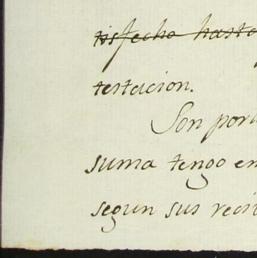 tisfecho hasta
testacion.
Son por
suma tengo en
segun sus reci